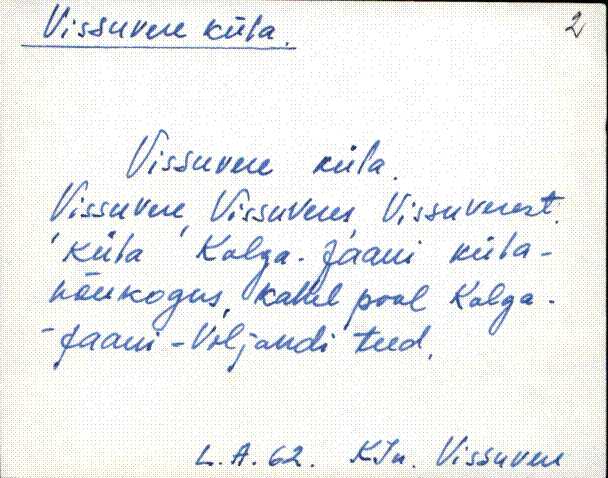 Vissuvere küla.
2
Vissuvere küla.
Vissuvere, Vissuveres, Vissuverest.
'küla Kolga-Jaani küla-
nõukogus, kahel pool Kolga-
-Jaani-Viljandi teed.
L.A. 62. KJn. Vissuvere